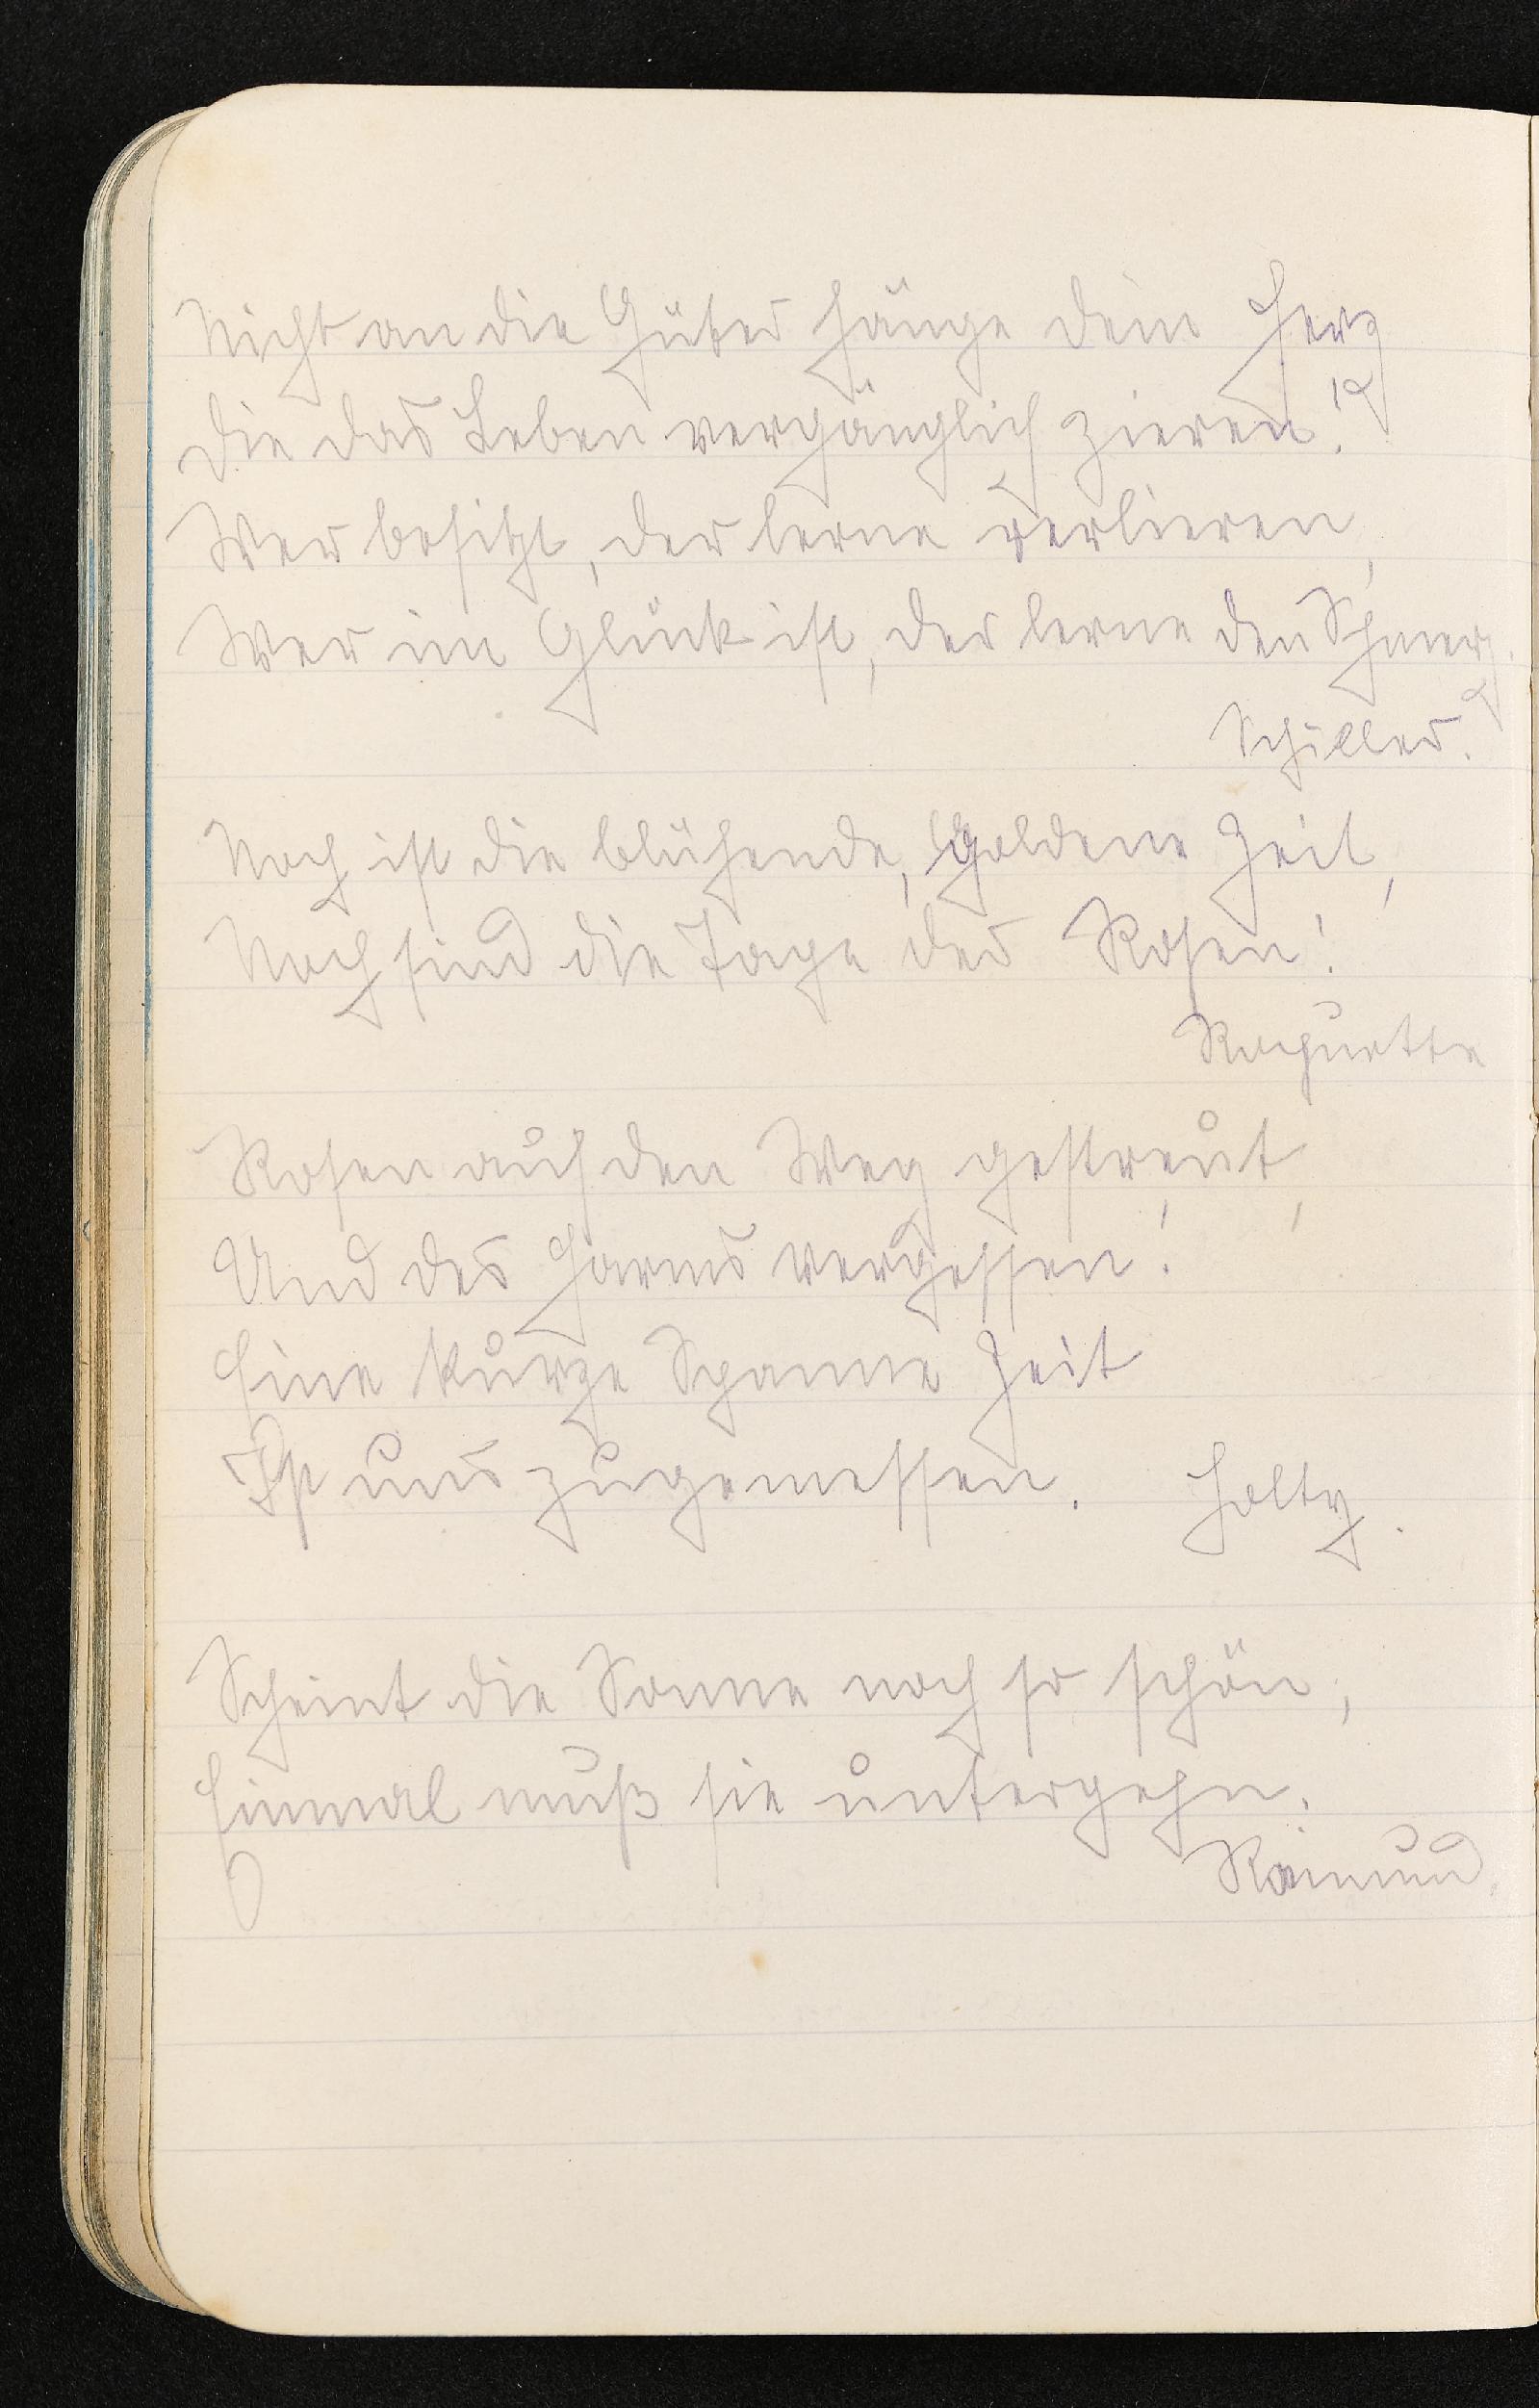 Nicht an die Güter hänge dein Herz
die das Leben vergänglich zieren!
Wer besitzt, der lerne verlieren,
Wer im Glück ist, der lerne den Schmerz.
Schiller.
Noch ist die blühende, goldene Zeit,
Noch sind die Tage der Rosen!
Roquette
Rosen auf den Weg gestreut,
Und des Harms vergessen!
Eine kurze Spanne Zeit
Ist uns zugemessen. Hölty.
Scheint die Sonne noch so schön,
Einmal muß sie untergehn.
Raimund.